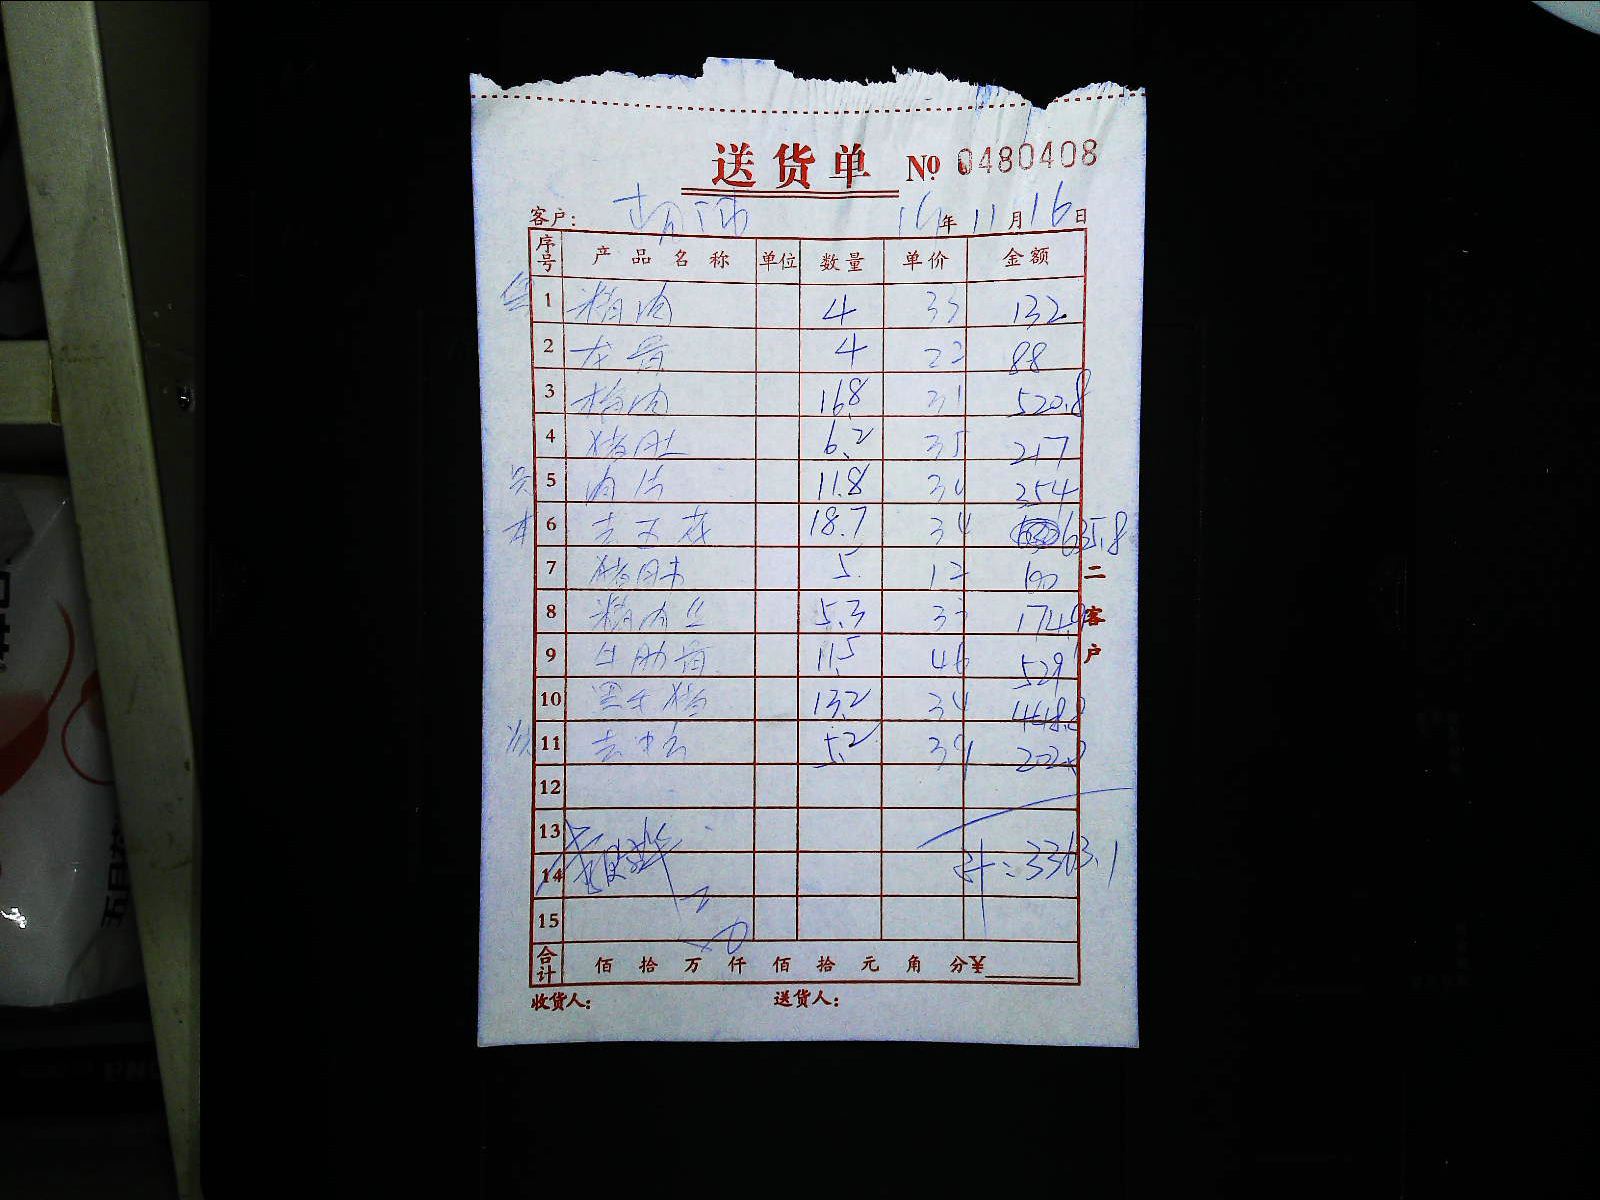 送货单 № 0480408
客户: 16年11月16日
序号 产品名称 单位 数量 单价 金额
1 精肉 4 33 132
2 龙骨 4 22 88
3 梅肉 16.8 31 520.8
4 猪肚 6.2 35 217
5 肉片 11.8 30 354
6 去皮 18.7 34 635.8
7 猪 5 12 60
8 精肉丝 5.3 33 174.9
9 牛肋骨 11.5 46 529
10 黑毛猪 13.2 34 448.8
11 5.2 39 202.8
12
13
14 计:3363.1
15
合计 佰拾万仟佰拾元角分¥
收货人: 送货人:
二客户